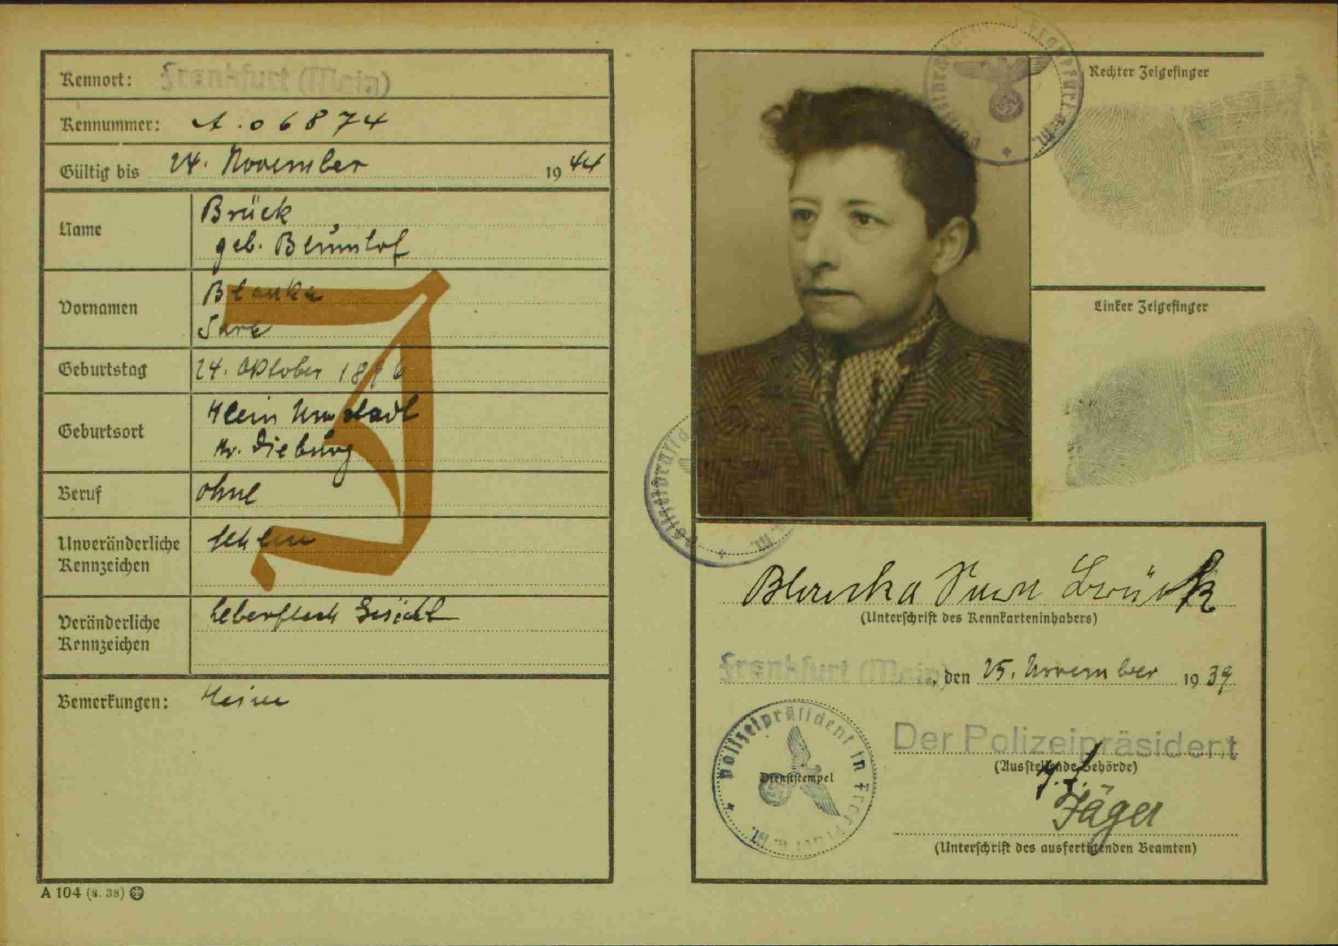 Kennort: Frankfurt (Main)
Kennummer: A. 06874
Gültig bis 24. November 1944
Name Brück
geb.
Vornamen Blanka
Sara
Geburtstag 24. Oktober 1896
Geburtsort Klein Umstadt
Kr. Dieburg
Beruf ohne
Unveränderliche Kennzeichen fehlen
Veränderliche Kennzeichen Leberfleck Gesicht
Bemerkungen: Keine
J
A 104 (8. 38)
Rechter Zeigefinger
Linker Zeigefinger
Blanka Sara Brück
(Unterschrift des Kennkarteninhabers)
Frankfurt (Main), den 25. November 1939
Der Polizeipräsident
(Ausstellende Behörde)
Polizeipräsident in Frankfurt a. M.
Dienststempel
Jäger
(Unterschrift des ausfertigenden Beamten)